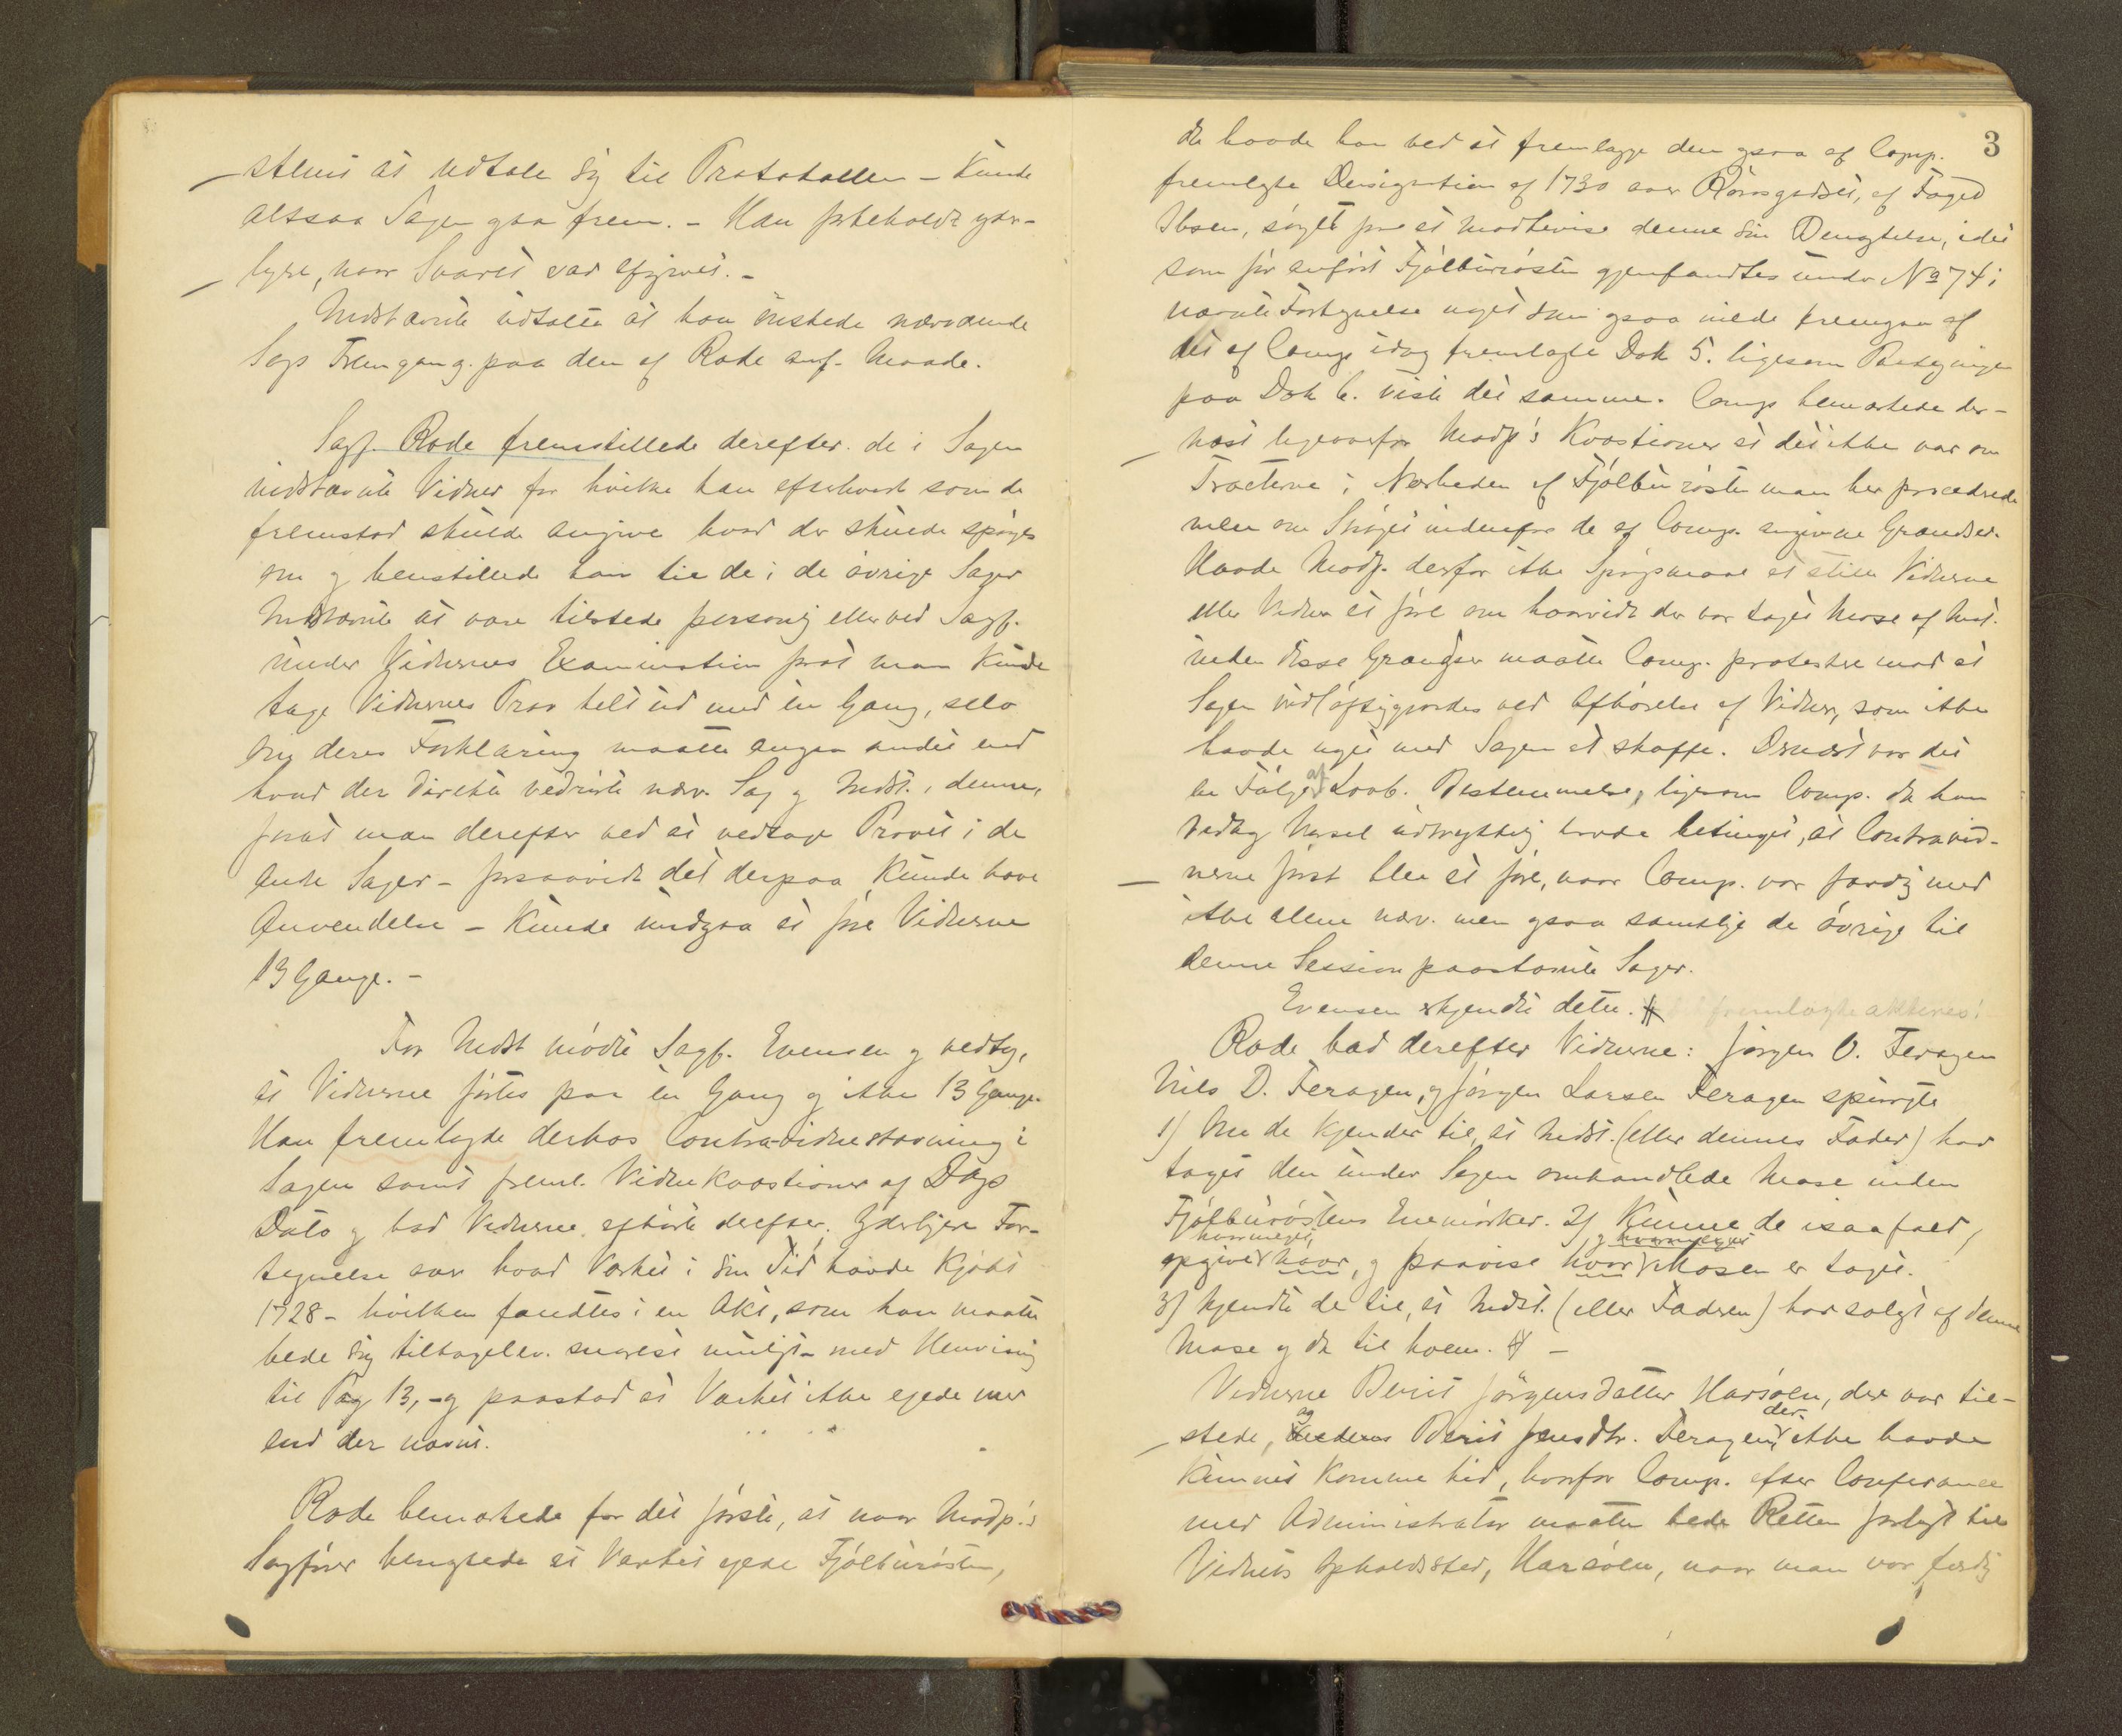 stevnt at udtale sig til Protokollen – kunde
altsaa Sagen gaa frem. – Han forbeholdt yder-
ligere, naar Svaret var afgivet. –
Indstævnte udtalte at han ønskede nærværende
Sags Fremgang paa den af Rode anf. Maade.
Sagf. Rode fremstillede derefter de i Sagen
indstævnte Vidner for hvilke han efterhvert som de
fremstod skulde angive hvad der skulde spørges
om og henstillede han til de i de øvrige Sager
Indstævnte at være tilstede personlig eller ved Sagf.
under Vidnernes Examination forat man kunde
tage Vidnernes Prov helt ud med én Gang, selv
om deres Forklaring maatte angaa andet end
hvad der direkte vedrørte nærv. Sag og Indst. i denne,
forat man derefter ved at vedtage Provet i de
andre Sager – forsaavidt det derpaa kunde have
Anvendelse – kunde undgaa at føre Vidnerne
13 Gange. –
For Indst mødte Sagf. Evensen og vedtog,
at Vidnerne førtes paa én Gang og ikke 13 Gange.
Han fremlagde derhos Contravidnestævning i
Sagen samt freml. Vidnekvæstioner af Dags
Dato og bad Vidnerne afhørte derefter. Yderligere For-
tegnelse over hvad Værket i sin Tid havde kjøbt
1728 – hvilken fandtes i en Akt, som han maatte
bede sig tilbagelev. snarest muligt – med Henvisning
til Pag 13, – og paastod at Værket ikke eiede mer
end der nævnt.
Rode bemærkede for det første, at naar Modp.'s
Sagfører benegtede at Værket eiede Fjølburøsten,
3
da havde han ved at fremlægge den ogsaa af Comp.
fremlagte Designation af 1730 over Rørosgodset, af Foged
Ibsen, søgt for at modbevise denne sin Benegtelse, idet
som før anført Fjølburøsten gjenfandtes under No 74 i
nævnte Fortegnelse noget som ogsaa vilde fremgaa af
det af Comp idag fremlagte Dok 5. ligesom Paategningen
paa Dok 6. viste det samme. Comp bemærkede der-
næst ligeoverfor Modp's Kvæstioner at det ikke var om
Tracterne i Nærheden af Fjølburøsten man her procederede
men om Strøget indenfor de af Comp. angivne Grændser.
Havde Modp. derfor ikke Spørgsmaal at stille Vidnerne
eller Vidner at føre om hvorvidt der var taget Mose af Indst.
inden disse Grændser maatte Comp. protestere mod at
Sagen vidløftiggjordes ved Afhørelse af Vidner, som ikke
havde noget med Sagen at skaffe. Dernæst var det
en Følge af Lovb. Bestemmelse, ligesom Comp. da han
vedtog Varsel udtrykkelig havde betinget, at Contravid-
nerne først blev at føre, naar Comp. var færdig med
ikke alene nærv. men ogsaa samtlige de øvrige til
denne Session paastævnte Sager.
Evensen erkjendte dette. fremlagte akteres!
Rode bad derefter Vidnerne: Jørgen O. Feragen
Nils D. Feragen, og Jørgen Larsen Feragen spurgte
1) Om de kjender til, at Indst. (eller dennes Fader) har
taget den under Sagen omhandlede Mose inden
Fjølburøstens Enemærker. 2) Kunne de isaafald,
hvormeget, og hvormeget
opgive naar, og paavise hvor Mosen er taget.
3) Kjendte de til, at Indst. (eller Faderen) har solgt af denne
Mose og da til hvem. –
Vidnerne Berit Jørgensdatter Harsøen, der var til-
og der
stede, Berit Jensdtr. Feragen ikke havde
kunnet komme hid, hvorfor Comp. efter Conferance
med Administrator maatte bede Retten forlagt til
Vidnets Opholdssted, Harsøen, naar man var færdig